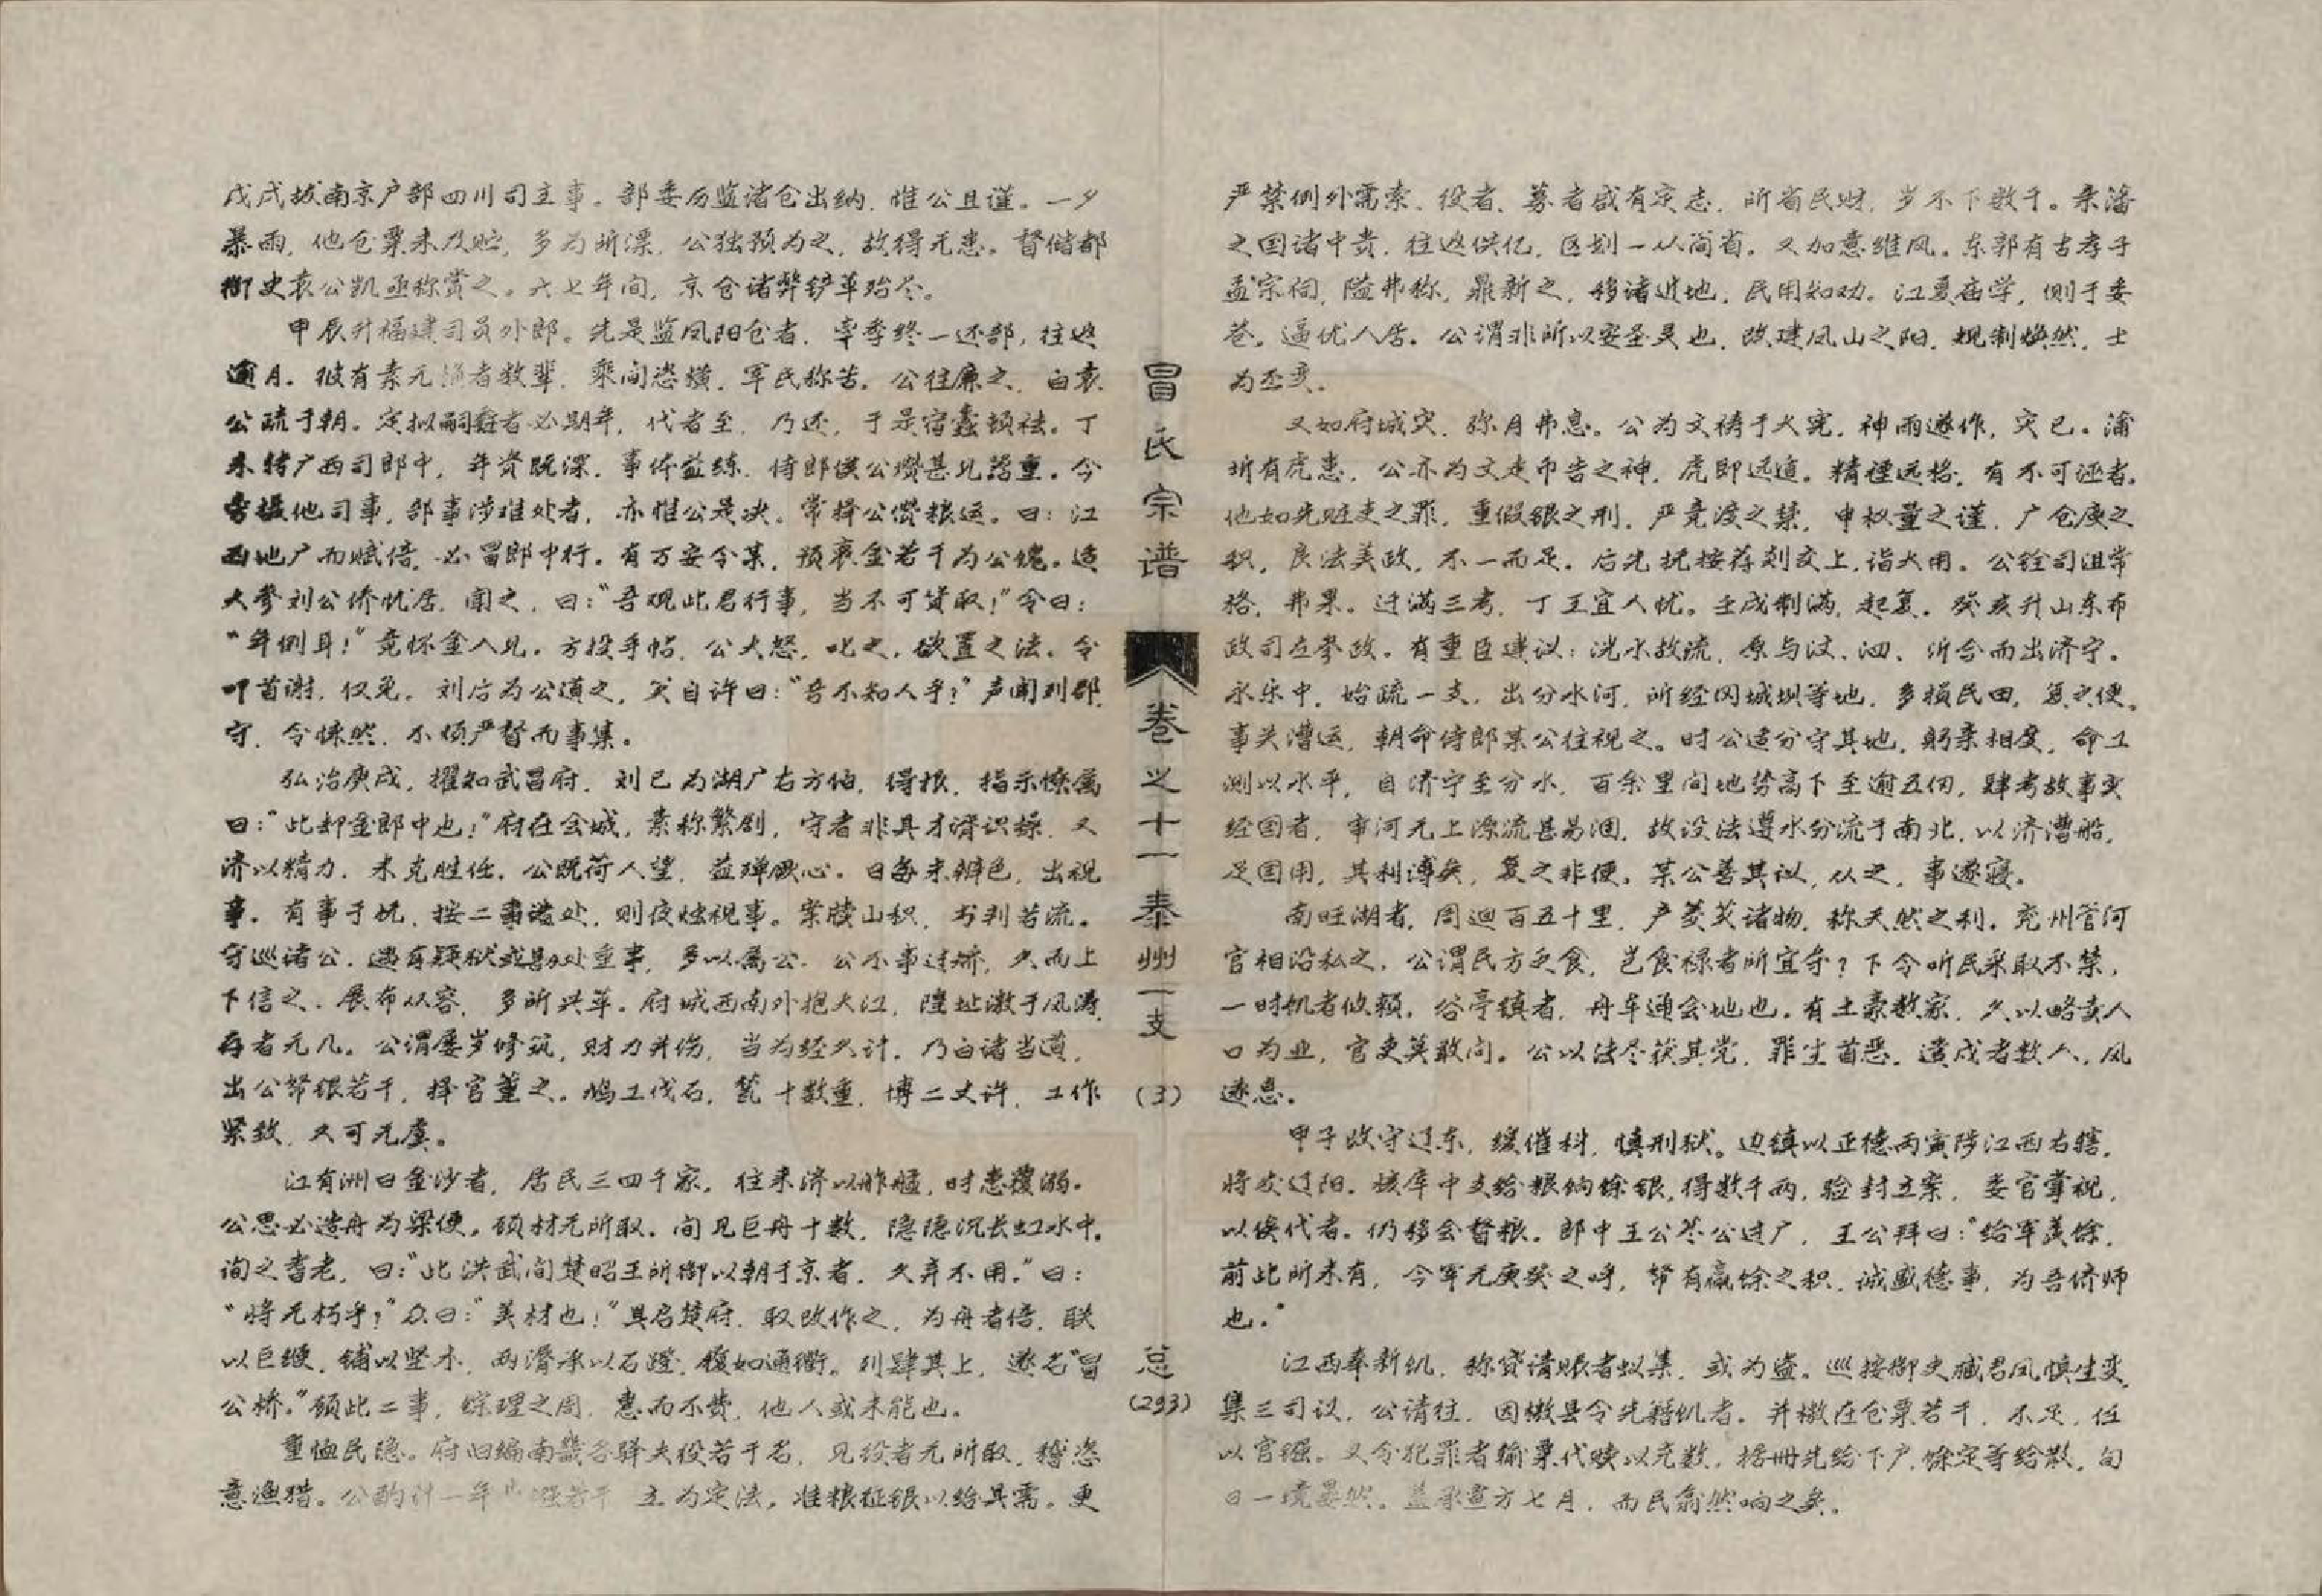 戊戌拔南京户部四川司主事。部委历监诸仓出纳，惟公且谨。一夕
暴雨，他仓粟未及贮，多为所漂，公独预为之，故得无患。督储都
御史袁公凯亟称赏之。六七年间，京仓诸弊铲革殆尽。
甲辰升福建司员外郎。先是监凤阳仓者，率季终一还部，往返
逾月。彼有素无 者数辈，乘间恣横，军民称苦。公往廉之，白袁
公疏于朝。定拟嗣莅者必期年，代者至，乃还，于是宿蠹顿祛。丁
未转广西司郎中，年资既深，事体益练，侍郎侯公瓒甚见器重。今
旁摄他司事，部事涉难处者，亦惟公是决。常择公偿粮运。曰：江
西地广而赋倍，必冒郎中行。有万安令某，预裒金若干为公馈。适
大参刘公侨忧居，闻之，曰：“吾观此君行事，当不可货取！”令曰：
“年例耳！”竟怀金入见。方投手帖，公大怒，叱之，欲置之法。令
叩首谢，仅免。刘后为公道之，笑自许曰：“吾不知人乎？”声闻列郡，
守、令悚然，不烦严督而事集。
弘治庚戌，擢知武昌府。刘已为湖广右方伯，得报，指示僚属
曰：“此却金郎中也！”府在会城，素称繁剧，守者非具才谞识操，又
济以精力，未克胜任。公既荷人望，益殚厥心。日每未辨色，出视
事。有事于抚、按二事诸处，则夜烛视事。案牍山积，书判若流。
守巡诸公，遇有疑狱或勘处重事，多以属公。公不事过矫，久而上
下信之，展布从容，多所兴革。府城西南外抱大江，隍址激于风涛，
存者无几。公谓屡岁修筑，财力并伤，当为经久计。乃白诸当道，
出公帑银若干，择官董之。鸠工伐石，甃十数重，博二丈许，工作
紧致，久可无虞。
江有洲曰金沙者，居民三四千家，往来济以舴艋，时患覆溺。
公思必造舟为梁便。顾材无所取，间见巨舟十数，隐隐沉长虹水中。
询之耆老，曰：“此洪武间楚昭王所御以朝于京者，久弃不用。”曰：
“将无朽乎？”众曰：“美材也！”具启楚府，取改作之，为舟者倍，联
以巨绠，铺以坚木，两湑承以石蹬，履如通衢。列肆其上，遂名“冒
公桥。”顾此二事，综理之周，惠而不费，他人或未能也。
重恤民隐。府旧编南畿各驿夫役若干名，见役者无所取，稽恣
意渔猎。公酌计一年 若干 立为定法，准粮征银以给其需。更
冒氏宗谱
卷之十一泰州一支
（3）
总
（293）
严禁例外需索，役者、募者咸有定志，所省民财，岁不下数千。亲藩
之国诸中贵，往返供亿，区划一从简省。又加意维风。东郭有古孝子
孟宗祠，隘弗称，鼎新之，移诸近地，民用知劝。江夏庙学，侧于委
巷，逼优人居。公谓非所以妥圣灵也，改建凤山之阳，规制焕然，士
为丕变。
又如府城灾，弥月弗息。公为文祷于大宪，神雨遂作，灾已。蒲
圻有虎患，公亦为文走币告之神，虎即远遁。精禋远格，有不可诬者。
他如先赃吏之罪，重假银之刑，严竞渡之禁，申权量之谨，广仓庾之
积，良法美政，不一而足。后先抚按荐剡交上，诣大用。公铨司沮常
格，弗果。迂满三考，丁王宜人忧。壬戌制满，起复。癸亥升山东布
政司左参政。有重臣建议：洸水故流，原与汶、泗、沂合而出济宁。
永乐中，始疏一支，出分水河，所经冈城坝等地，多损民田，复之便。
事关漕运，朝命侍郎某公往视之。时公适分守其地，躬亲相度，命工
测以水平，自济宁至分水，百余里间地势高下至逾五仞，肆考故事实
经国者，审河无上源流甚易涸，故设法遵水分流于南北，以济漕船，
足国用，其利溥矣，复之非便。某公善其议，从之，事遂寝。
南旺湖者，周迴百五十里，产菱芡诸物，称天然之利。兖州管河
官相沿私之。公谓民方乏食，岂食禄者所宜夺？下令听民采取不禁，
一时饥者攸赖。谷亭镇者，舟车通会地也。有土豪数家，久以略卖人
口为业，官吏莫敢问。公以法尽获其党，罪坐首恶，遣戍者数人，风
遂息。
甲子改守辽东，缓催科，慎刑狱。边镇以正德丙寅陟江西右辖，
将发辽阳。核库中支给粮饷馀银，得数千两，验封立案，委官掌视，
以俟代者。仍移会督粮。郎中王公苍公过广，王公拜曰：“给军羡馀，
前此所未有，今军无庚癸之呼，帑有赢馀之积，诚盛德事，为吾侪师
也。”
江西奉新饥，称贷请赈者蚁集，或为盗。巡按御史臧君凤惧生变，
集三司议。公请往，因檄县令先籍饥者。并檄在仓粟若干，不足，任
以官镪。又令犯罪者输粟代赎以充数，据册先给下户，馀定等给散，旬
日一境晏然。盖承宣方七月，而民翕然响之矣。